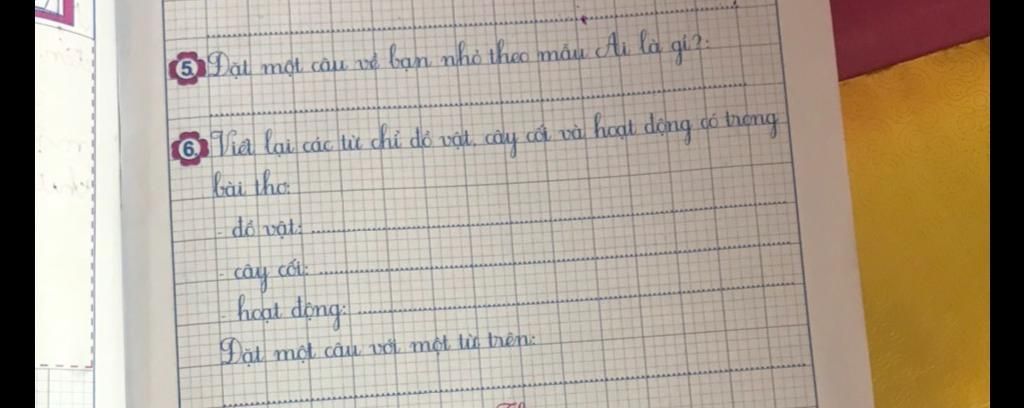 5 Đặt một câu về bạn nhỏ theo mẫu Ai là gì?:
6 Viết lại các từ chỉ đồ vật, cây cối và hoạt động có trong
bài thơ:
- đồ vật:
- cây cối:
- hoạt động:
Đặt một câu với một từ trên: